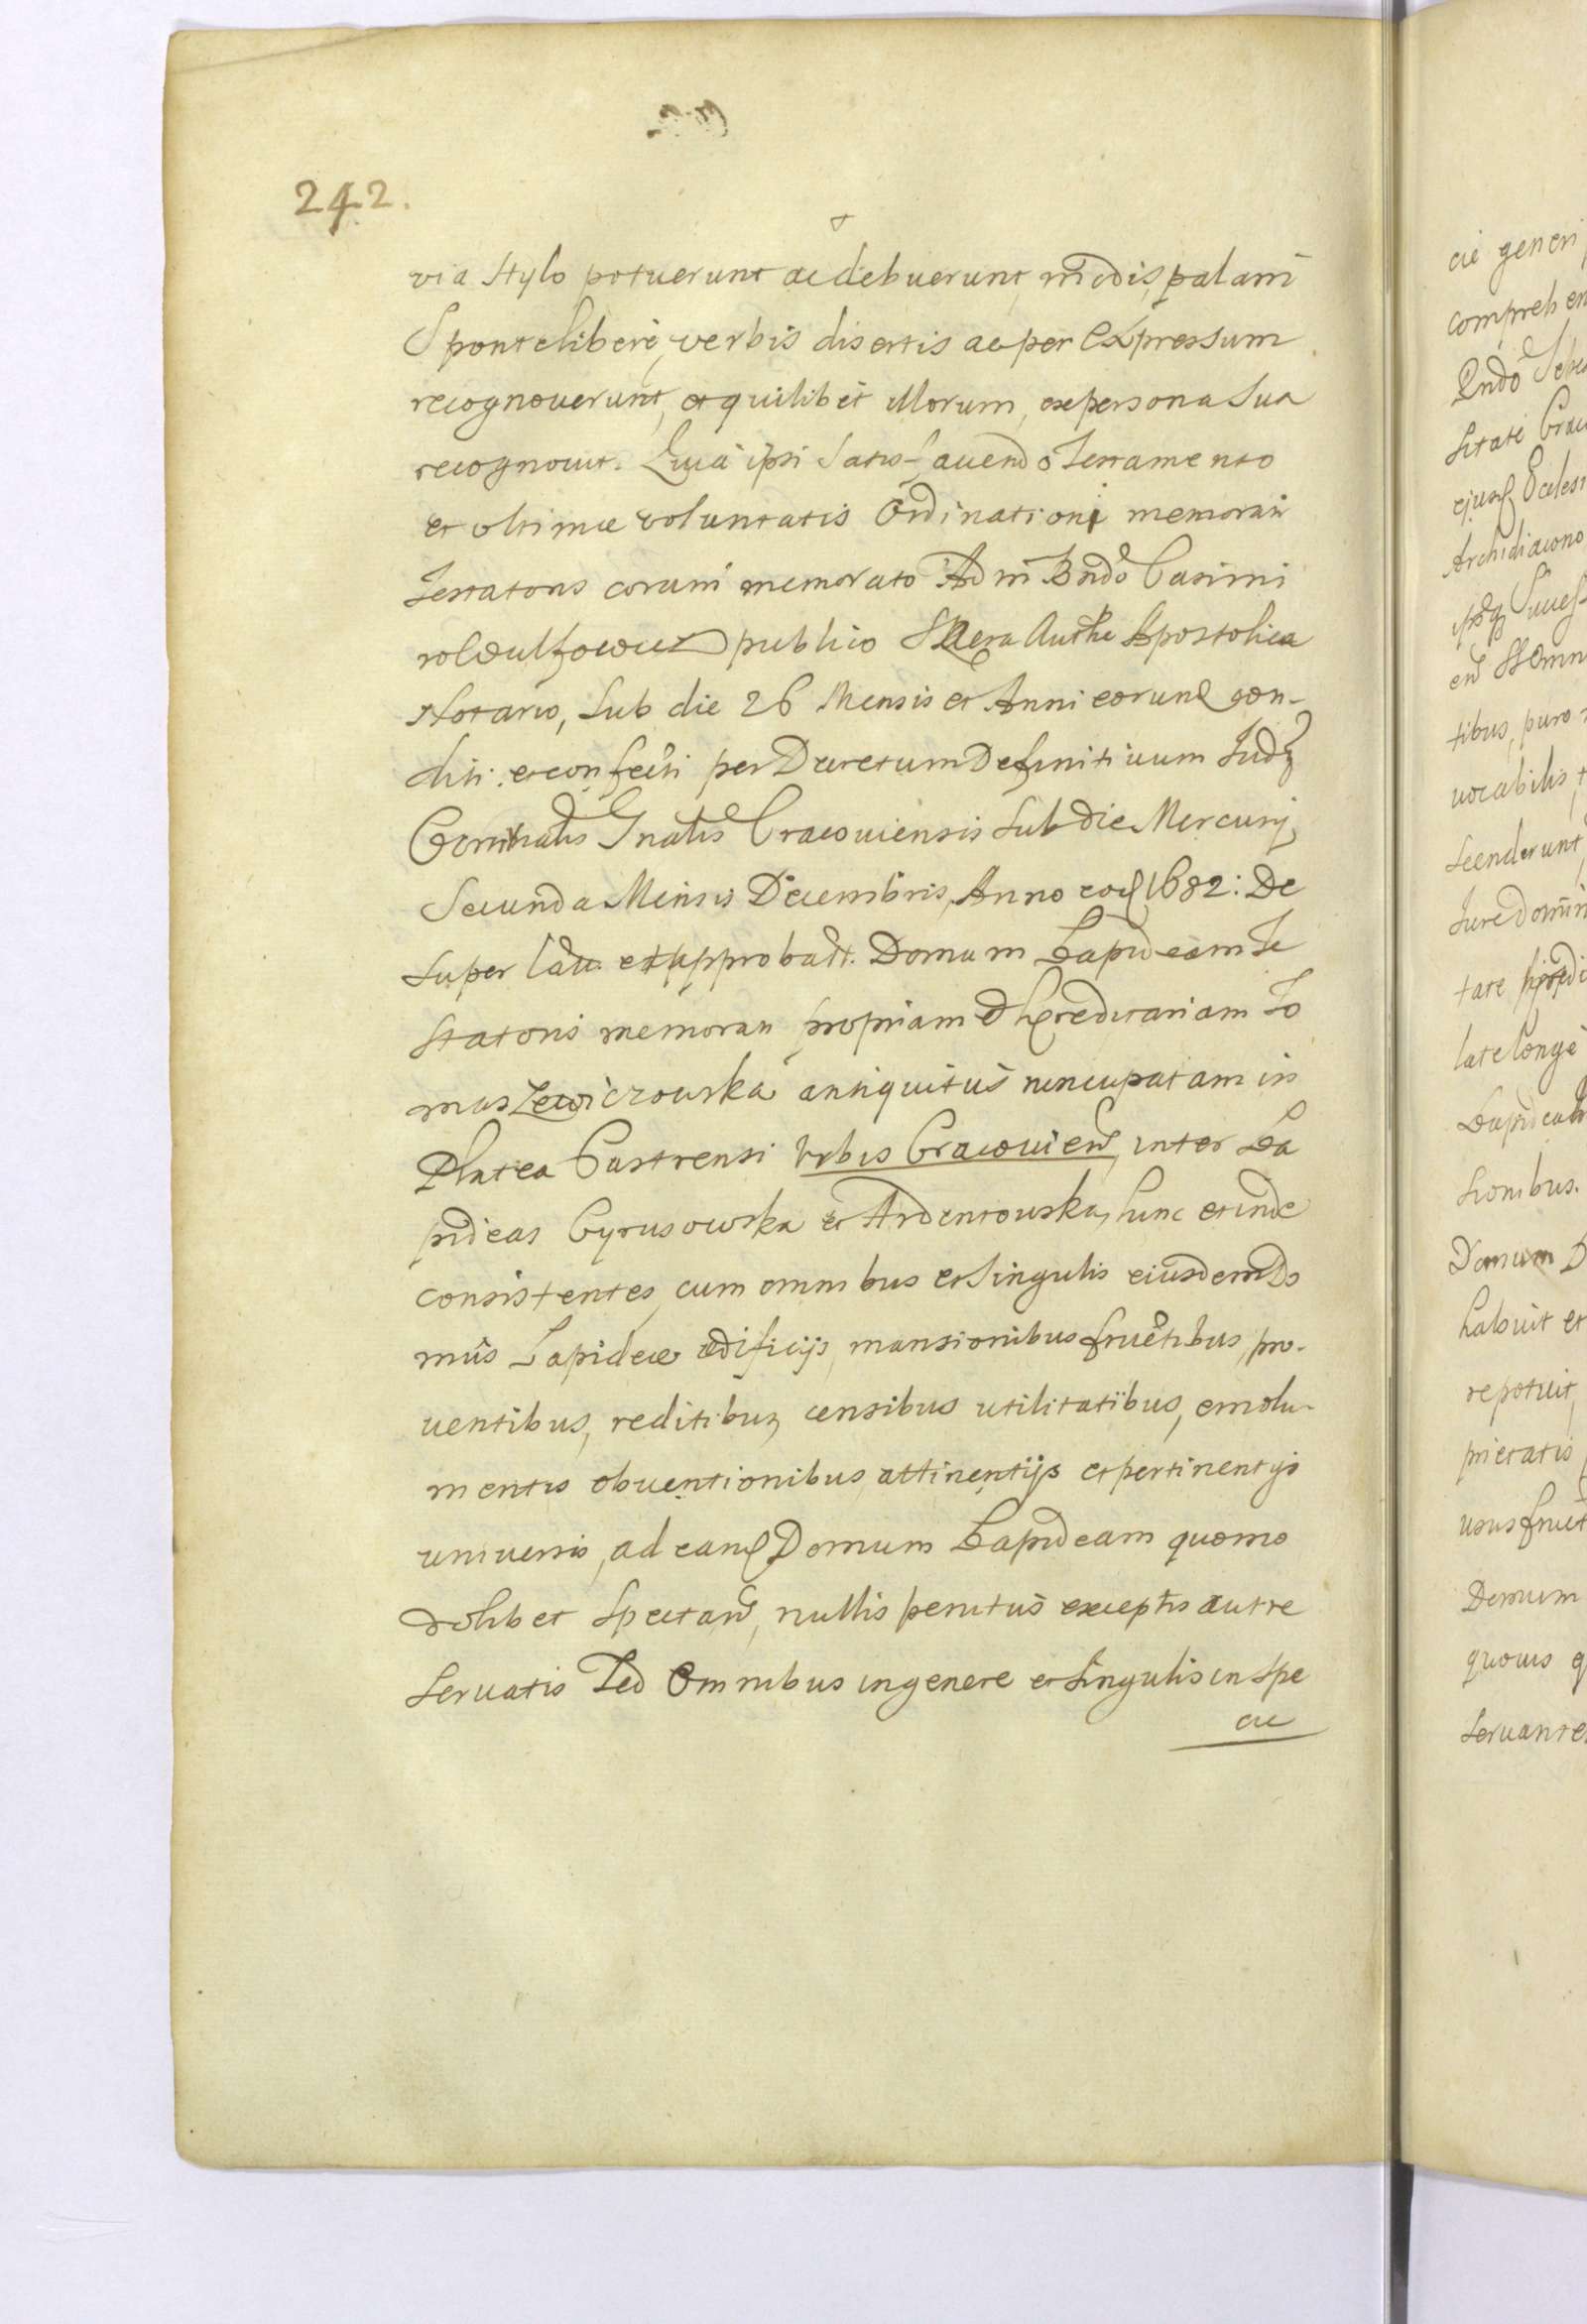 242.
via Stylo potuerunt ac debuerunt, modis, palam
Sponte libere, verbis disertis ac per Expressum
recognoverunt, et quilibet illorum, ex persona Sua
recognovit. Quia ipsi Satis-favendo Testamento
et ultimæ voluntatis Ordinationi memorati
Testatoris coram memorato Adm Rndo Casimi
ro publico Sacra Authe Apostolica
Notario, Sub die 26 Mensis et Anni eorund con-
diti et confecti per Decretum Definitivum Judz
Gnalis Cracoviensis Sub die Mercurij
Secunda Mensis Decembris, Anno eod 1682: De
super Lato et approbatt. Domum Lapideam Te
statoris memorati propriam et hæreditariam To
maszewiczowska antiquitus nuncupatam in
Platea Castrensi Vrbis Cracovien, inter La
pideas Cyrusowska et Ardentowska, hinc et inde
consistentes, cum omnibus et Singulis eiusdem Do
mus Lapideæ ædificijs, mansionibus fructibus, pro-
ventibus, reditibus, censibus utilitatibus, emolu-
mentis obventionibus, attinentijs et pertinentijs
universis, ad eand Domum Lapideam quomo
dolibet Spectan, nullis penitus exceptis aut re
Servatis Sed Omnibus in genere et Singulis in Spe
cie
cie generi
comprehen
Rndo
sitati Crac
ejusd Eccles
Archidiacono
tibus, puro
vocabilis
scenderunt
Jure Domin
tare
late longe
Lapideam
sionibus.
Domum D
habuit et
re potuit,
prietatis
usus fruct
Domum
quovis q
servante